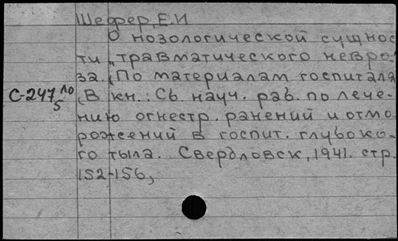 Шефер, Е.И
О нозологической сущнос
ти „травматического невро
за. (По материалам госпиталя
С-247 10
5
(В кн.: Сб. науч. раб. по лече-
нию огнестр. ранений и отмо
рожений в госпит. глубоко-
го тыла. Свердловск, 1941. стр.
152-156,